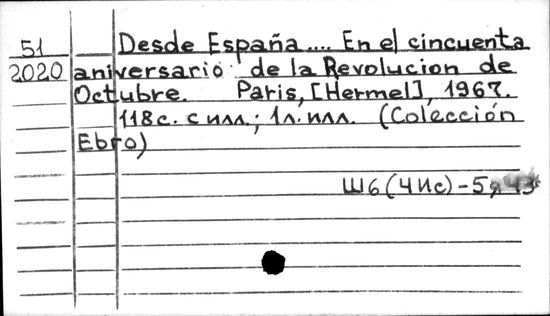 51 Desde España.... En el cincuenta
2020 aniversario de la Revolucion de
Octubre. Paris, [Hermel], 1967.
118с. с илл.; 1л. илл. (Colección
Ebro)
Ш6(4Ис)-5